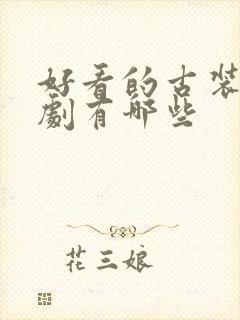 好看的古装
剧有哪些
花三娘